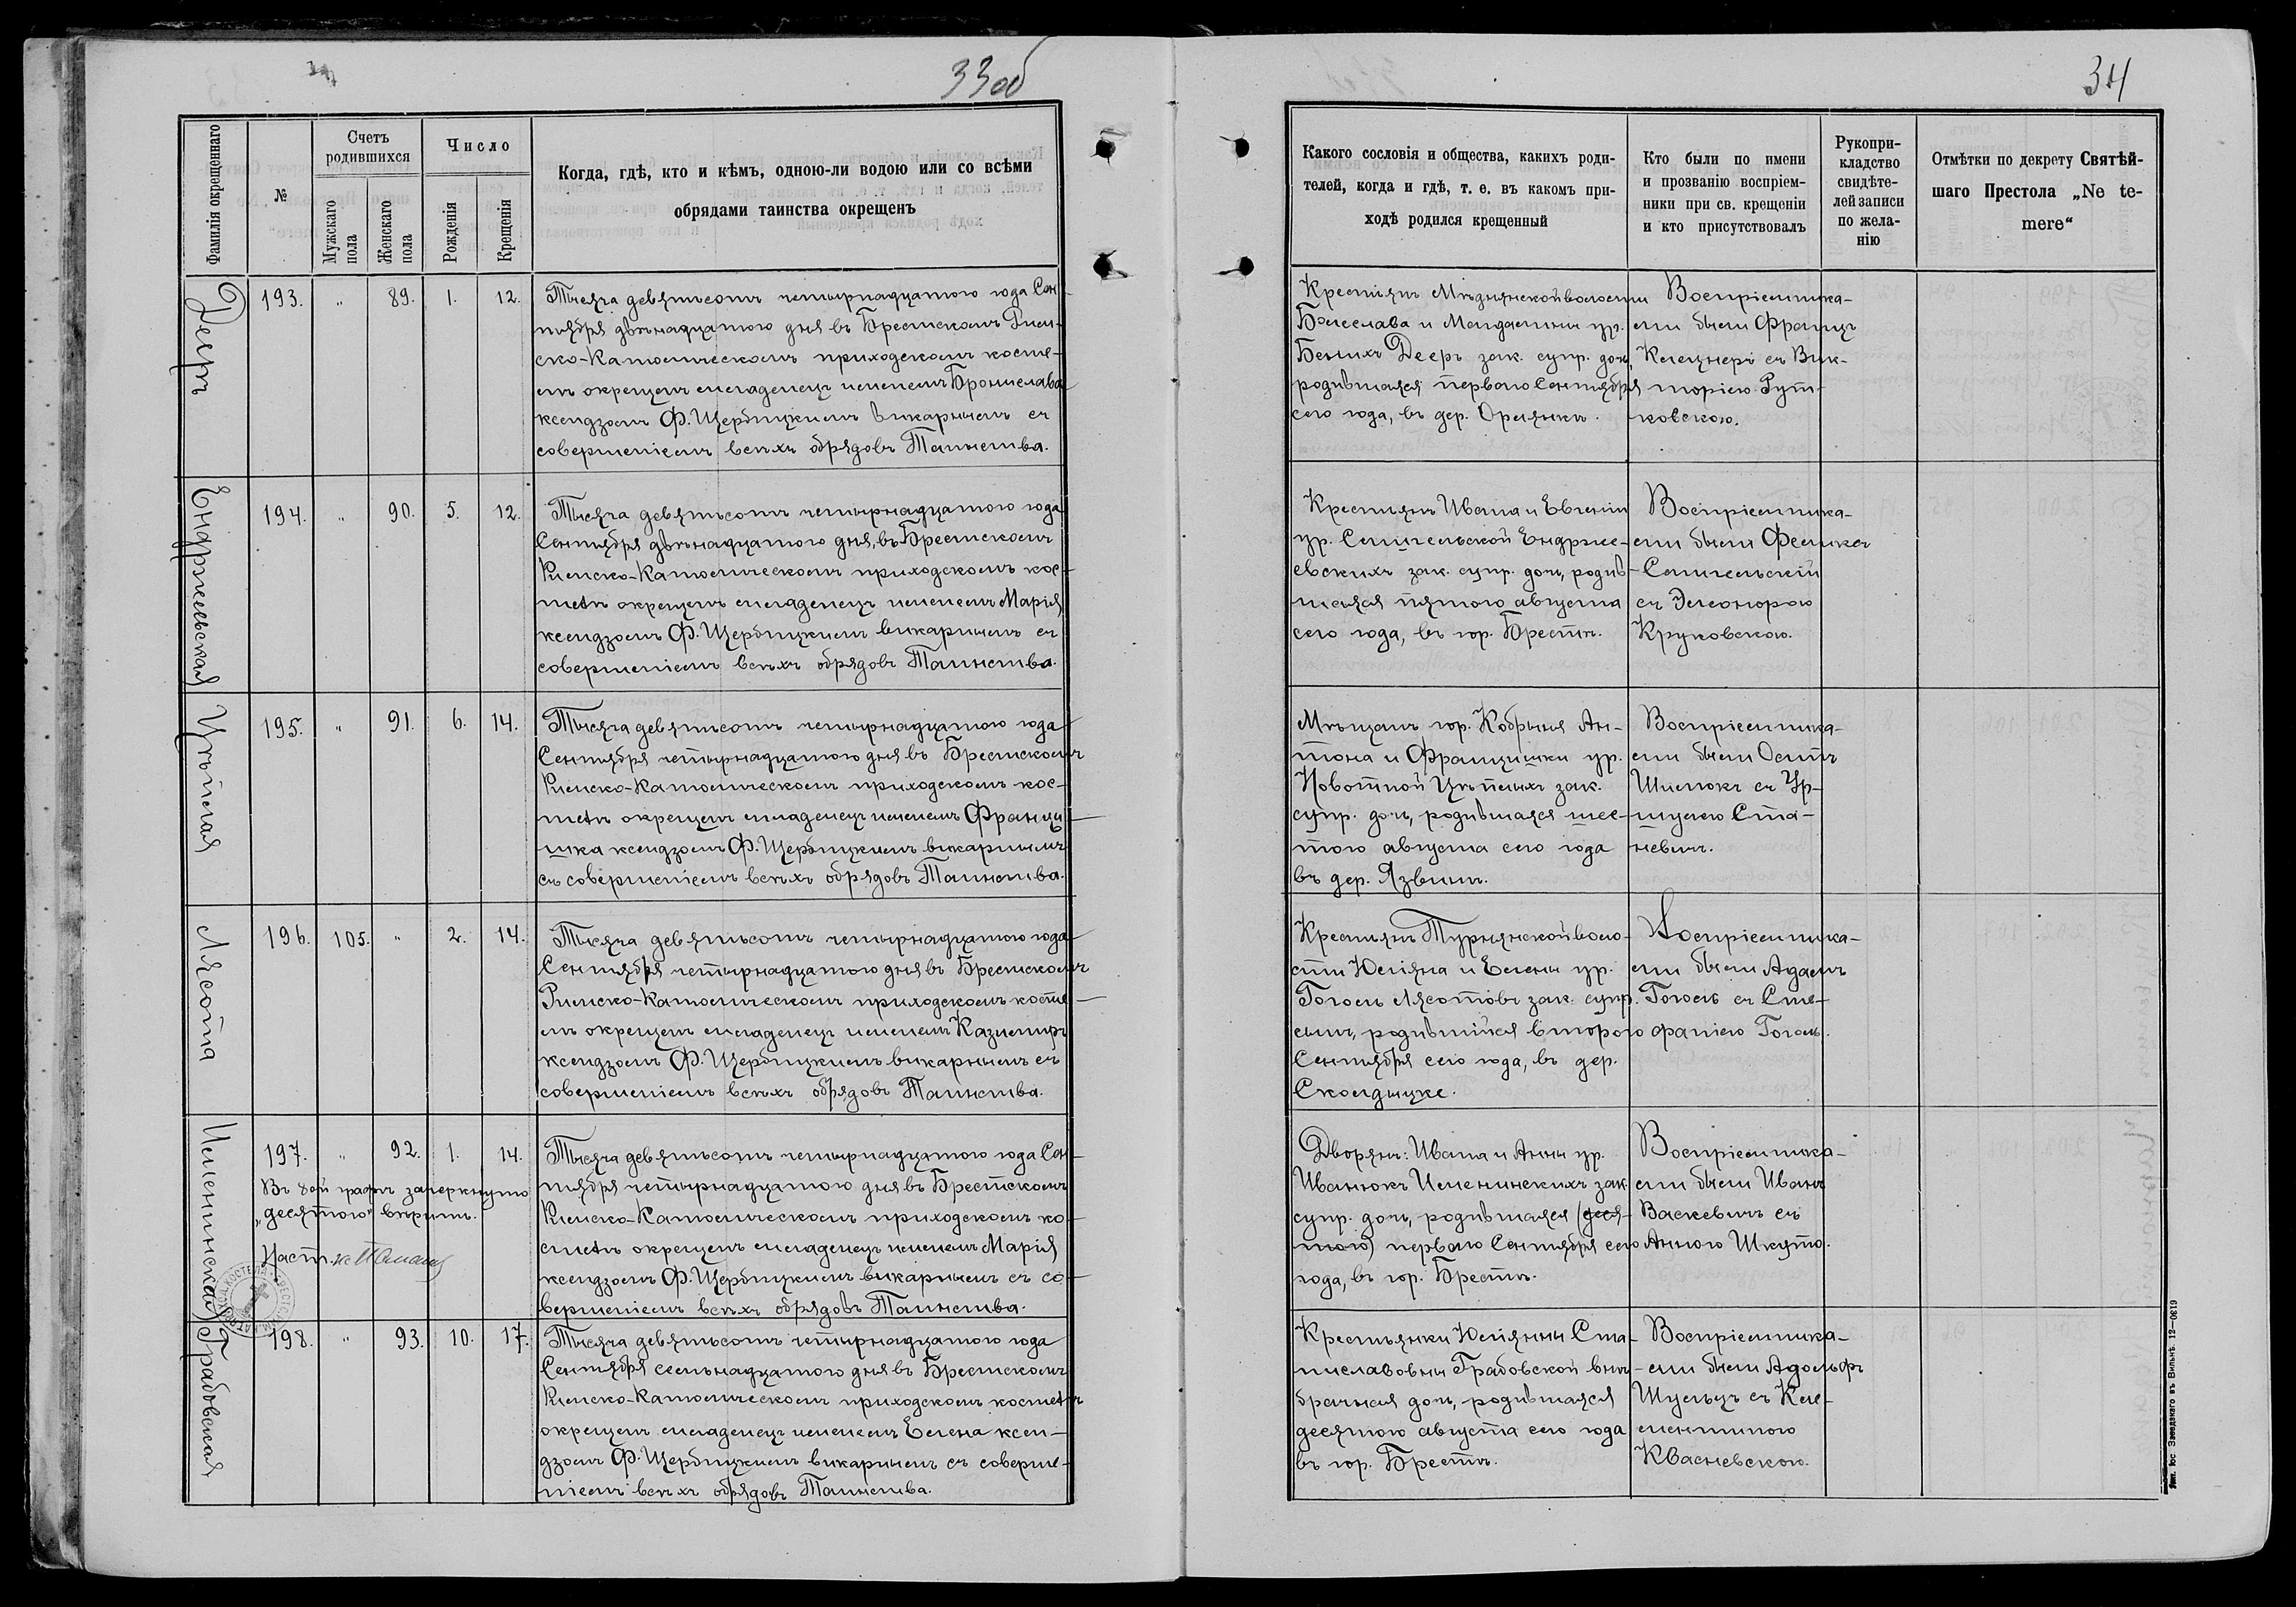 33 об
Фамилія окрещеннаго
№
Счетъ
родившихся
Мужскаго
пола
Женскаго
пола
Число
Рожденія
Крещенія
Когда, гдѣ, кто и кѣмъ, одною-ли водою или со всѣми
обрядами таинства окрещенъ
Дееръ
193.
"
89.
1.
12.
Тысяча девятьсотъ четырнадцатого года Сен-
тября двѣнадцатого дня въ Брестскомъ Рим-
ско-Католическомъ приходскомъ косте-
лѣ окрещенъ младенецъ именемъ Бронислава
ксендзомъ Ф. Щербицкимъ викарнымъ съ
совершеніемъ всѣхъ обрядовъ Таинства.
Ендржеевская
194.
"
90.
5.
12.
Тысяча девятьсотъ четырнадцатого года
Сентября двѣнадцатого дня, въ Брестскомъ
Римско-Католическомъ приходскомъ кос-
телѣ окрещенъ младенецъ именемъ Марія
ксендзомъ Ф. Щербицкимъ викарнымъ съ
совершеніемъ всѣхъ обрядовъ Таинства.
Цѣплая
195.
"
91.
6.
14.
Тысяча девятьсотъ четырнадцатого года
Сентября четырнадцатого дня въ Брестскомъ
Римско-Католическомъ приходскомъ кос-
телѣ окрещенъ младенецъ именемъ Франци-
шка ксендзомъ Ф. Щербицкимъ викарнымъ
съ совершеніемъ всѣхъ обрядовъ Таинства.
Лясота
196.
105.
"
2.
14.
Тысяча девятьсотъ четырнадцатого года
Сентября четырнадцатого дня въ Брестскомъ
Римско-Католическомъ приходскомъ косте-
лѣ окрещенъ младенецъ именемъ Казимиръ
ксендзомъ Ф. Щербицкимъ викарнымъ съ
совершеніемъ всѣхъ обрядовъ Таинства.
Именинская
197.
"
92.
1.
14.
Въ 8ой графѣ зачеркнуто
"десятого" вѣрить.
Наст. кс.
Тысяча девятьсотъ четырнадцатого года Сен-
тября четырнадцатого дня въ Брестскомъ
Римско-Католическомъ приходскомъ ко-
стелѣ окрещенъ младенецъ именемъ Марія
ксендзомъ Ф. Щербицкимъ викарнымъ съ со-
вершеніемъ всѣхъ обрядовъ Таинства.
Грабовская
198.
"
93.
10.
17.
Тысяча девятьсотъ четырнадцатого года
Сентября семьнадцатого дня въ Брестскомъ
Римско-Католическомъ приходскомъ костелѣ
окрещенъ младенецъ именемъ Елена ксен-
дзомъ Ф. Щербицкимъ викарнымъ съ соверше-
ніемъ всѣхъ обрядовъ Таинства.
34
Какого сословія и общества, какихъ роди-
телей, когда и гдѣ, т. е. въ какомъ при-
ходѣ родился крещенный
Кто были по имени
и прозванію воспріем-
ники при св. крещеніи
и кто присутствовалъ
Рукопри-
кладство
свидѣте-
лей записи
по жела-
нію
Отмѣтки по декрету Святѣй-
шаго Престола „Ne te-
mere“
Крестьянъ Мѣднянской волости
Болеслава и Магдалины ур.
Бенихъ Дееръ зак. супр. дочь,
родившаяся перваго Сентября
сего года, въ дер. Орлянки.
Воспріемника-
ми были Францъ
Клецнеръ съ Вик-
торіею Рут-
ковскою.
Крестьянъ Ивана и Евгеніи
ур. Смигельской Ендрже-
евскихъ зак. супр. дочь, родив-
шаяся пятого августа
сего года, въ гор. Брестѣ.
Воспріемника-
ми были Феликсъ
Смигельскій
съ Элеонорою
Круковскою.
Мѣщанъ гор. Кобрыня Ан-
тона и Францишки ур.
Новотной Цѣплыхъ зак.
супр. дочь, родившаяся шес-
того августа сего года
въ дер. Язвинъ.
Воспріемника-
ми были Осипъ
Шилюкъ съ Ур-
шулею Ста-
невичъ.
Крестьянъ Турнянской воло-
сти Юліяна и Елены ур.
Гоголь Лясотовъ зак. супр.
сынъ, родившійся второго
Сентября сего года, въ дер.
Сколдычке.
Воспріемника-
ми были Адамъ
Гоголь съ Сте-
фаніею Гоголь.
Дворянъ: Ивана и Анны ур.
Иванюкъ Именинскихъ зак.
супр. дочь, родившаяся (деся-
того) перваго Сентября сего
года, въ гор. Брестѣ.
Воспріемника-
ми были Иванъ
Васкевичъ съ
Анною Шкута.
Крестьянки Юліянны Ста-
ниславовны Грабовской внѣ-
брачная дочь, родившаяся
десятого августа сего года
въ гор. Брестѣ.
Воспріемника-
ми были Адольфъ
Шульцъ съ Кле-
ментиною
Квасневскою.
Тип. Іос. Завадзкаго въ Вильнѣ. 12—0619